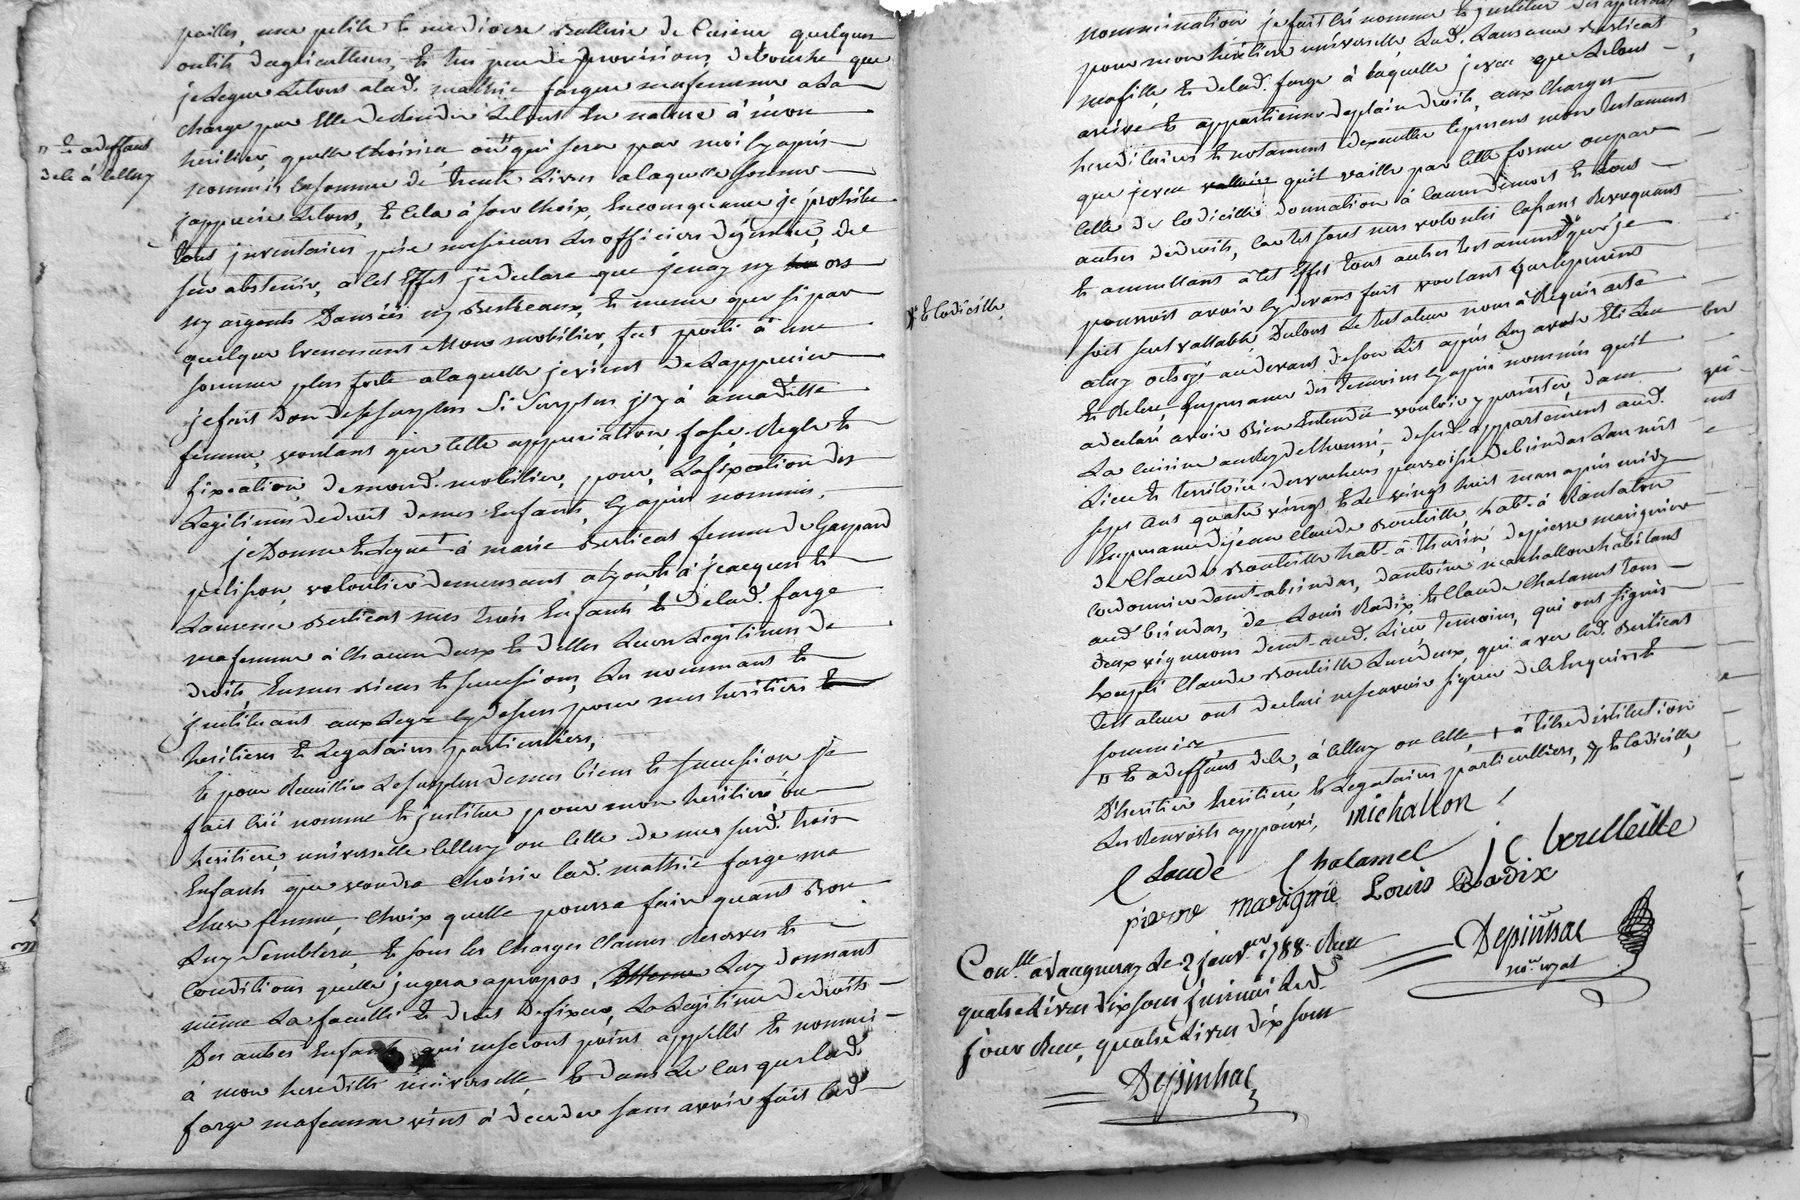 pailles, une petite & mediocre batterie de Cuisine quelques
outils dagriculture, & tres peu de provisions, de bouche que
je legue letout alad. mathie farge mafemme ala
charge par Elle de rendre letout En nature à mon
heritier, quelle choisira ou" qui sera par moi Cyapres
" & adeffaut
dele à Celluy
nommé lasomme de trente Livres alaquelle somme
japprecie letout, & Cela à son Choix, Enconsequence je prohibe
tout inventaire prie messieurs Les officiers dejustice, de
sen abstenir, à Cet Effet je declare que jenay ny or
ny argents Danrées ny Bestiaux, & meme que si par
quelque Evenement Mon mobilier, fut porté à une
somme plus forte alaquelle je viens de Lapprecier
je fais don de Cesurplus Si Surplus jl y à amaditte
femme, voulant que Cette appreciation fasse Regle &
fixation demond. mobilier, pour, Lafixation des
Legitimes dedroit demes Enfants, Cyapres nommés.
je Donne & Legue à marie Berticat femme de Gaspard
pelisson, voiturier demeurant alyon, & à jeacques &
Laurence Berticat mes trois Enfants & delad. farge
mafemme à Chacun deux & delles Leurs Legitimes de
droits, Enmes Biens & successions, Les nommant &
jnstituant auxLegs Cydessus pour mes heritiers
heritieres & Legataires particuliers,
& pour Recuillir Lesurplus demes biens & succession je
fait Crée nomme & jnstitue pour mon heritier ou
heritiere, universelle Celluy ou Celle de mes susd. trois
Enfants que voudra Choisir lad. mathie farge ma
Chere femme, Choix quelle pourra faire quant Bon
Luy Semblera, & sous les Charges Clauses Reserves &
Conditions quelle jugera apropos, Luy donnant
même La faculté & droit defixer, La Legitime dedroits
Des autres Enfants qui neseront point appellés & nommés
à mon heredité universelle, & dans Le Cas que lad.
farge mafemme vint à deceder sans avoir fait lad.
nommination je fait Crée nomme & jnstitue des apresent
pour mon heritiere universelle Lad. Laurence Berticat
mafille, & delad. farge à laquelle je veu que letout
arrive & appartienne deplain droit, aux Charges
hereditaires & notament dexecuter lepresent mon testament
que jeveu quil vaille par Cette forme ou par
Celle de Codicille donnation à Cause demort & tous
autres dedroits, Car tel sont mes volontés Cassant Revoquant
& annullant à Cet Effet tous autres testaments que je
& Codicille,
pourrois avoir Cydevant fait voulant que lepresent
soit seul vallable Dutout Le testateur nous à Requis acte
aluy octroyé audevant deson Lit après Luy avoir Eté Leu
& Relue, Enpresence des temoins Cyapres nommés quil
adeclaré avoir Bien Entendu vouloir y persister, dans
La Cuisine aurez de chaussé, desud. appartement aud.
Lieu & territoire paroisse de brindas Lan mil
sept Cent quatre vingt & Le vingt huit mars apres midy
Enpresence de jean Claude Bouteille, hab. à
de Claude Bouteille hab. à Thurin, de pierre marignier
Cordonnier demt. abrindas, dantoine michallon habitant
aud. brindas, de Louis Radix, & Claude Chalamel tous
deux vignerons demt. aud. Lieu, temoins, qui ont signés
Excepté Claude Bouteille Lundeux, qui avec led. Berticat
testateur ont declaré nesçavoir signer dele Enquis &
sommés,
" & adeffaut dele, à Celluy ou Celle, + à titre dinstitution
Dheritier heritiere, & Legataires particulliers, & Codicille,
Les Renvois approuvé, michallon
Claude Chalamel J C boulleille
pierre marignié Louis Radix
Depinhac
no.re royal
Con.lle avaugneray Le 2 janv.er 1788. Reçu
quatre Livres dix sous jnsinué Led.
jour Reçu, quatre Livres dix sous
Depinhac